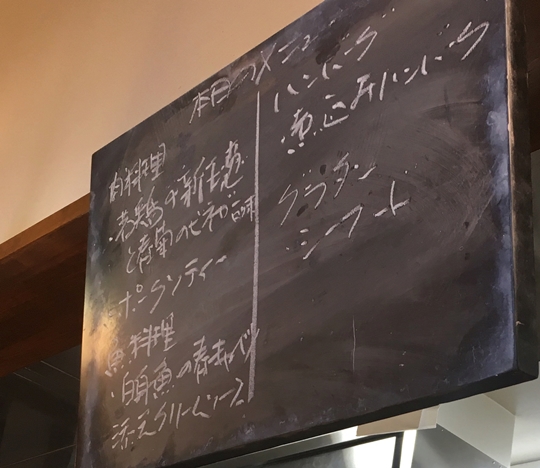 本日のメニュー
肉料理
・若鶏の新任
と春菊のビネガー
・ポーク
魚料理
・白身魚の春キャベツ
添えクリームソース
ハンバーグ
・煮込みハンバーグ
グラタン
・シーフード